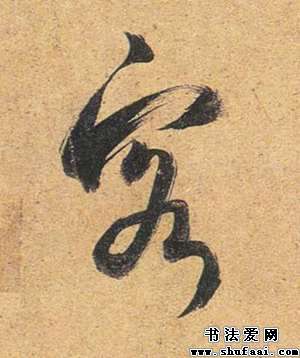 容
书法爱网
www.shufaai.com